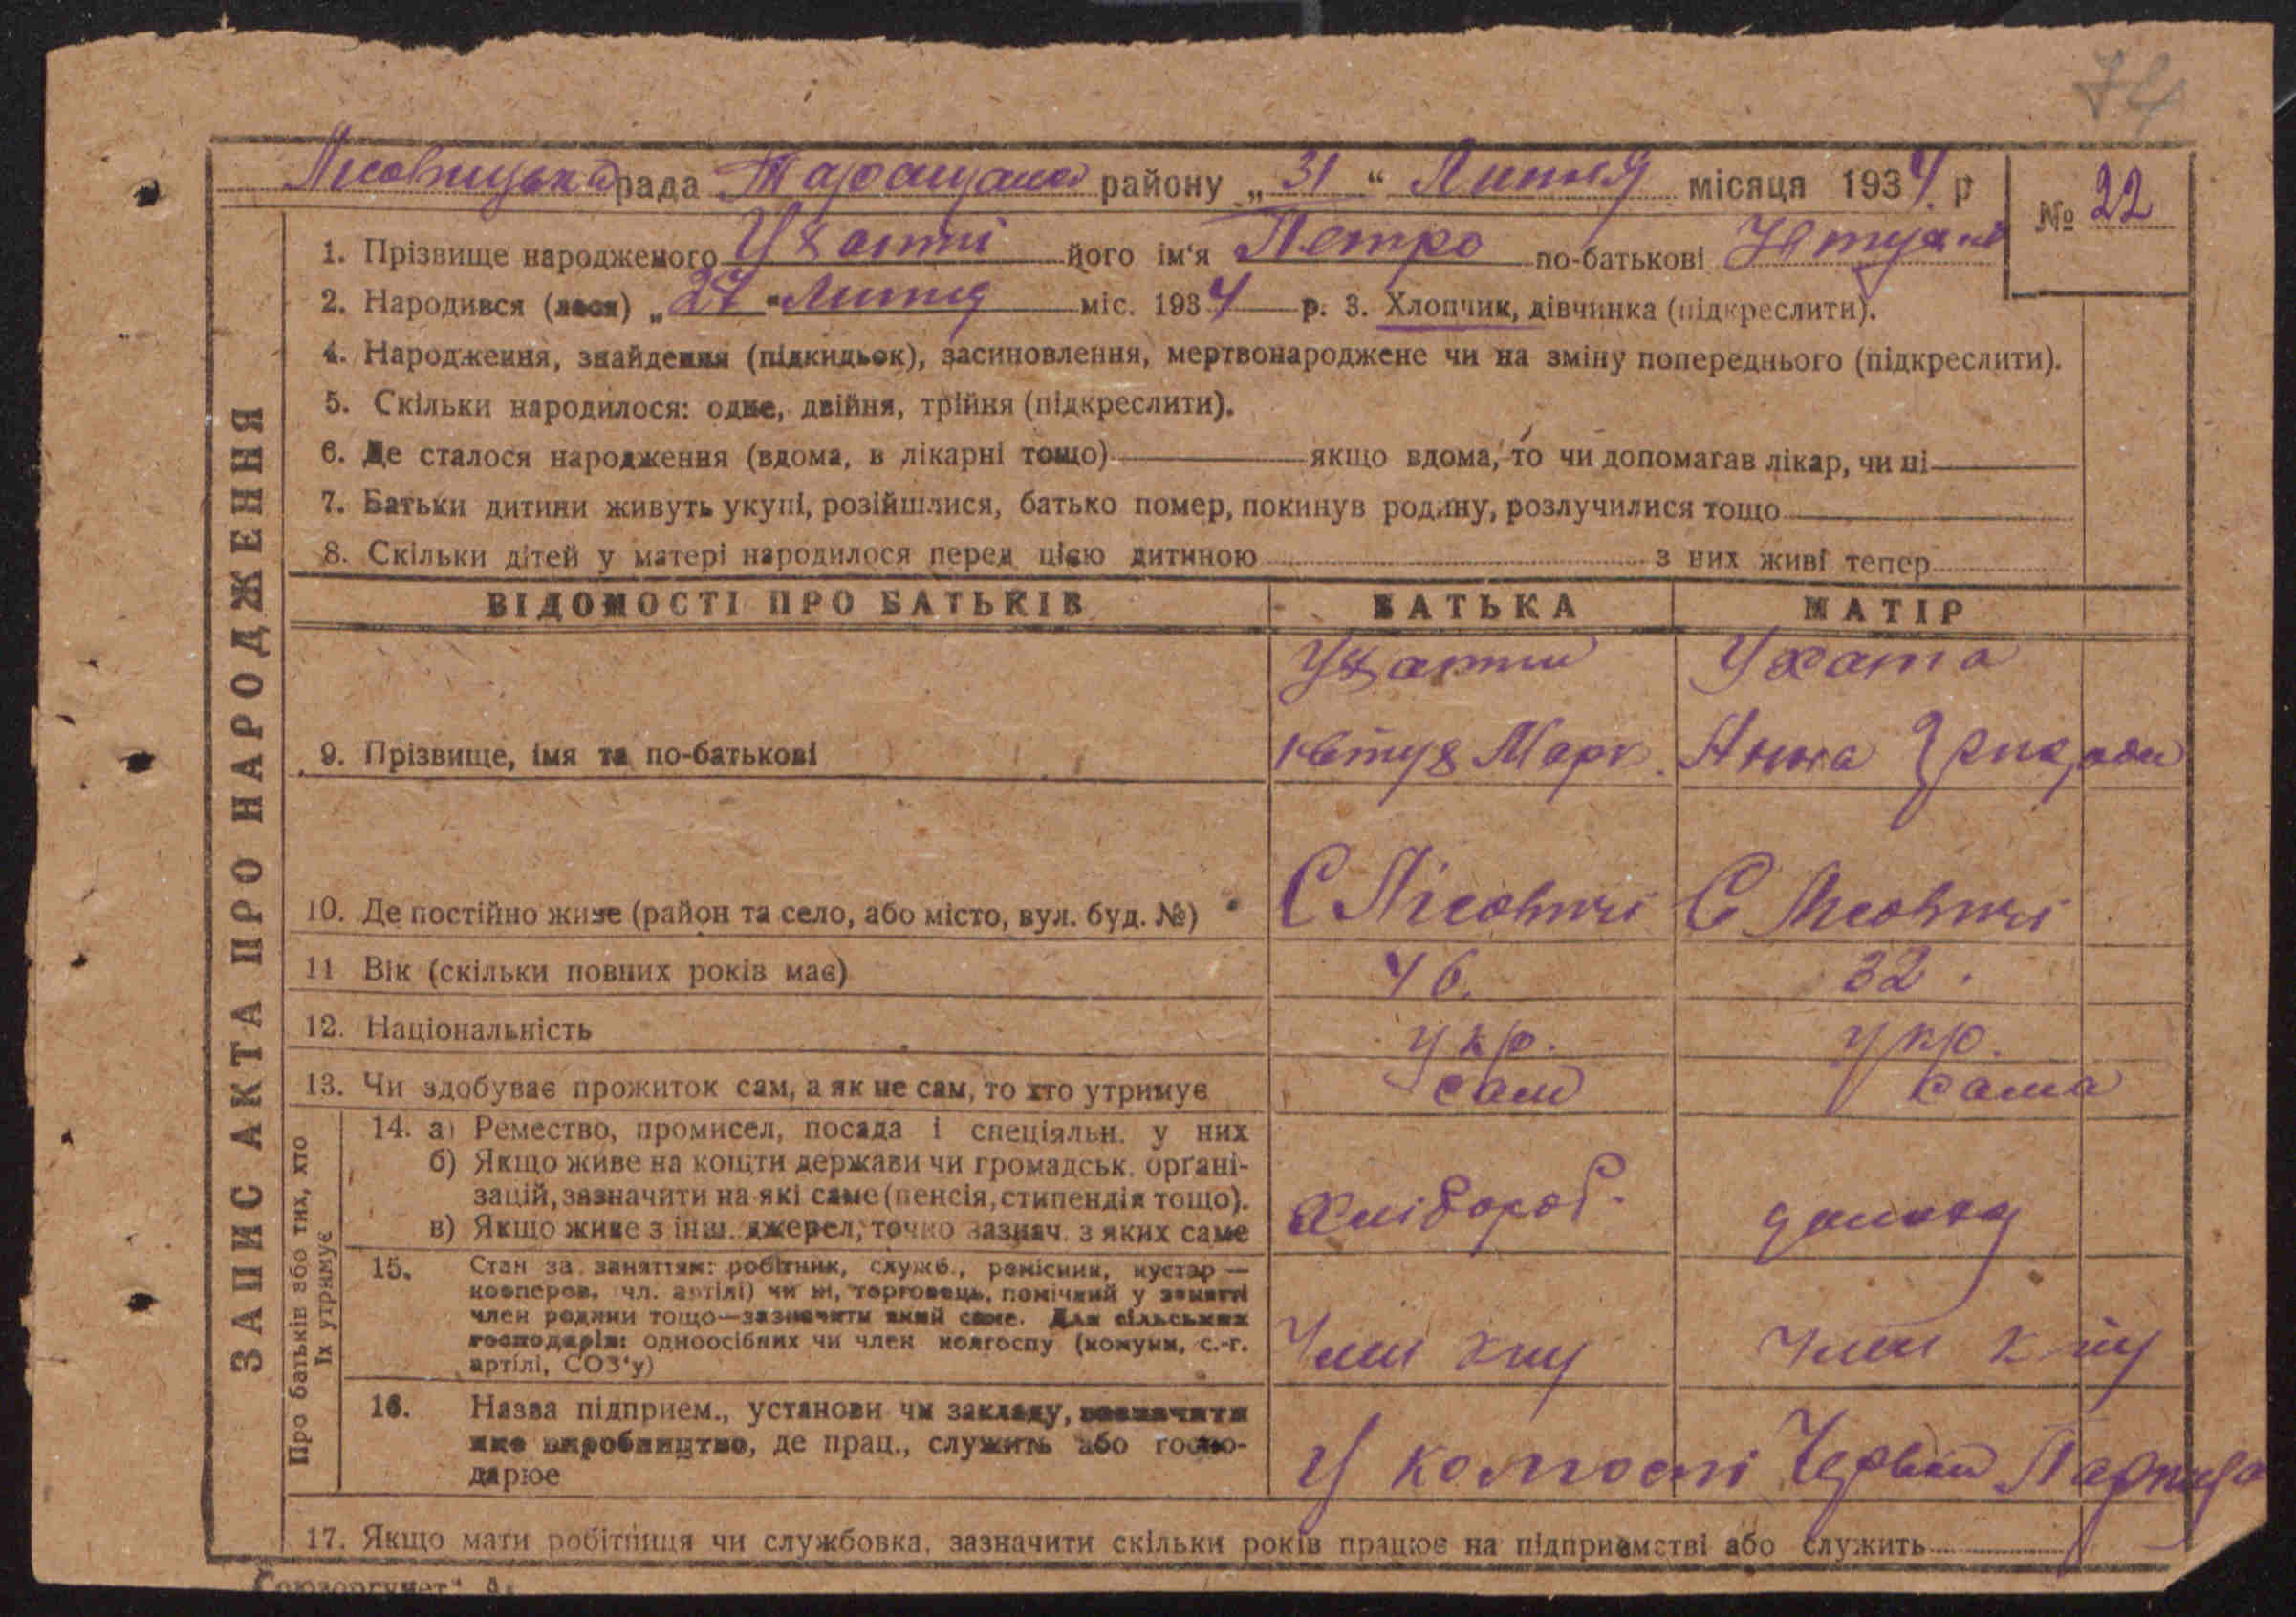 74
Лісовицька рада Таращан району „31“ Липня місяця 1934 р
№ 22
1. Прізвище народженого Ухатий його ім'я Петро по-батькові
2. Народився (лася) „27“ Липня міс. 1934 р. 3. Хлопчик, дівчинка (підкреслити).
4. Народження, знайдення (підкидьок), засиновлення, мертвонароджене чи на зміну попереднього (підкреслити).
5. Скільки народилося: одне, двійня, трійня (підкреслити).
6. Де сталося народження (вдома, в лікарні тощо) якщо вдома, то чи допомагав лікар, чи ні
7. Батьки дитини живуть укупі, розійшлися, батько помер, покинув родину, розлучилися тощо
8. Скільки дітей у матері народилося перед цією дитиною з них живі тепер
ЗАПИС АКТА ПРО НАРОДЖЕННЯ
ВІДОМОСТІ ПРО БАТЬКІВ БАТЬКА МАТІР
Ухатий Ухата
9. Прізвище, імя та по-батькові Євтух Марк. Анна Григоров
10. Де постійно живе (район та село, або місто, вул. буд. №) С Лісовичі С Лісовичі
11 Вік (скільки повних років має) 46. 32.
12. Національність укр. укр.
13. Чи здобуває прожиток сам, а як не сам, то хто утримує сам сама
Про батьків або тих, хто
їх утримує
14. а) Ремество, промисел, посада і спеціяльн. у них
б) Якщо живе на кошти держави чи громадськ. орґані-
зацій, зазначити на які саме (пенсія, стипендія тощо).
Хлібороб.
в) Якщо живе з інш. джерел, точно зазнач. з яких саме
15. Стан за заняттям: робітник, служб., ремісник, кустар —
кооперов. чл. артілі) чи ні, торговець, помічний у занятті
член родини тощо—зазначити який саме. Для сільських
господарів: одноосібник чи член колгоспу (комуни, с.-г.
артілі, СОЗ'у)
Член Член
16. Назва підприєм., установи чи закладу, зазначити
яке виробництво, де прац., служить або госпо-
дарює
У колгоспі Червон
17. Якщо мати робітниця чи службовка, зазначити скільки років працює на підприємстві або служить